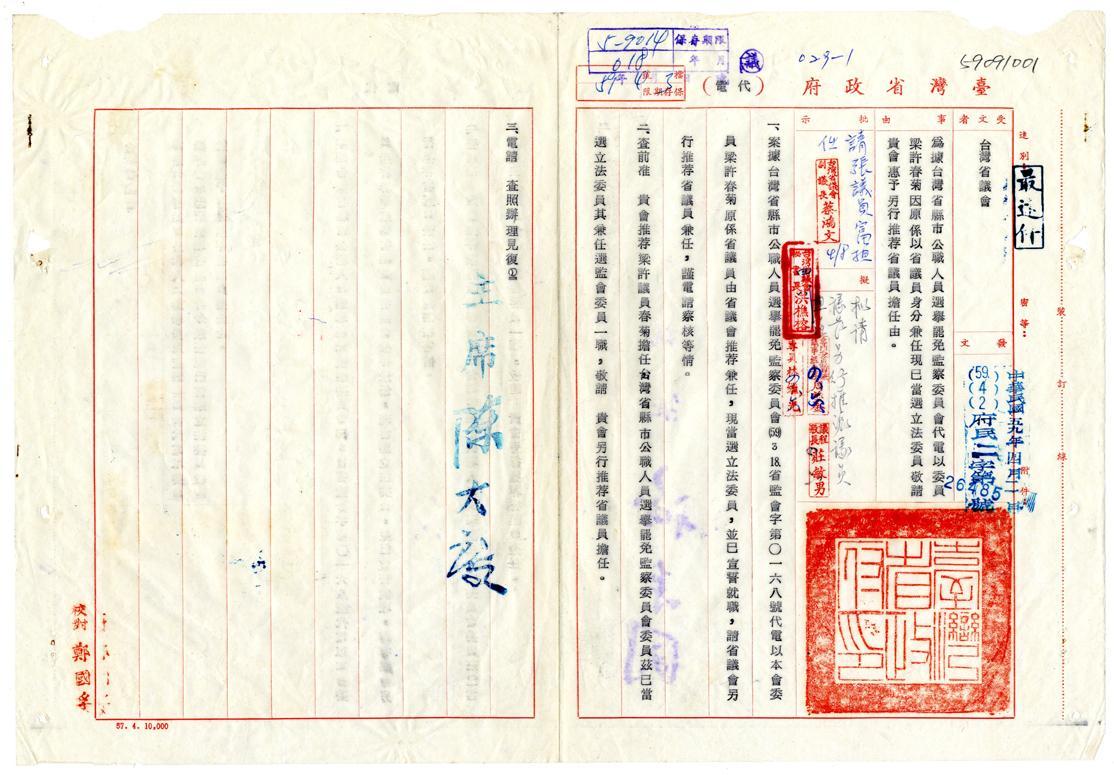 5-9014
018
保存期限
年 月
議
023-1
59091001
59年4
檔號
保存期限
3
臺灣省政府（代電）
受文者
台灣省議會
速別
最速件
密等：
裝訂線
發文
中華民國五九年四月二日
(59.)(4)(2)府民二字第26485號
附件
事由
為據台灣省縣市公職人員選舉罷免監察委員會代電以委員
梁許春菊因原係以省議員身分兼任現已當選立法委員敬請
貴會惠予另行推荐省議員擔任由。
批示
請張議員富担
任
台灣省議會
副議長 蔡鴻文
4/8
擬
擬請
台灣省議會
秘書長 洪樵榕
議程
主任 莊敏男
一、案據台灣省縣市公職人員選舉罷免監察委員會(59)3 18.省監會字第〇一六八號代電以本會委
員梁許春菊原係省議員由省議會推荐兼任，現當選立法委員，並已宣誓就職，請省議會另
行推荐省議員兼任，謹電請察核等情。
二、查前准 貴會推荐梁許議員春菊擔任台灣省縣市公職人員選舉罷免監察委員會委員茲已當
選立法委員其兼任選監會委員一職，敬請 貴會另行推荐省議員擔任。
三、電請 查照辦理見復。
主席 陳大慶
臺灣省政府印
校對 鄭國
57. 4. 10,000